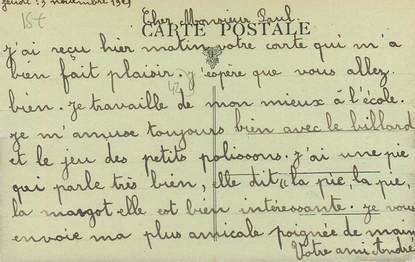 Jeudi : 3 novembre 1927
15 €
Cher Monsieur Paul
CARTE POSTALE
j'ai reçu hier matin votre carte qui m'a
bien fait plaisir. j'espère que vous allez
bien. je travaille de mon mieux à l'école.
je m'amuse toujours bien avec le billard
et le jeu des petits polissons. j'ai une pie
qui parle très bien, elle dit « la pie, la pie,
la margot elle est bien intéressante. je vous
envoie ma plus amicale poignée de main
Votre ami André